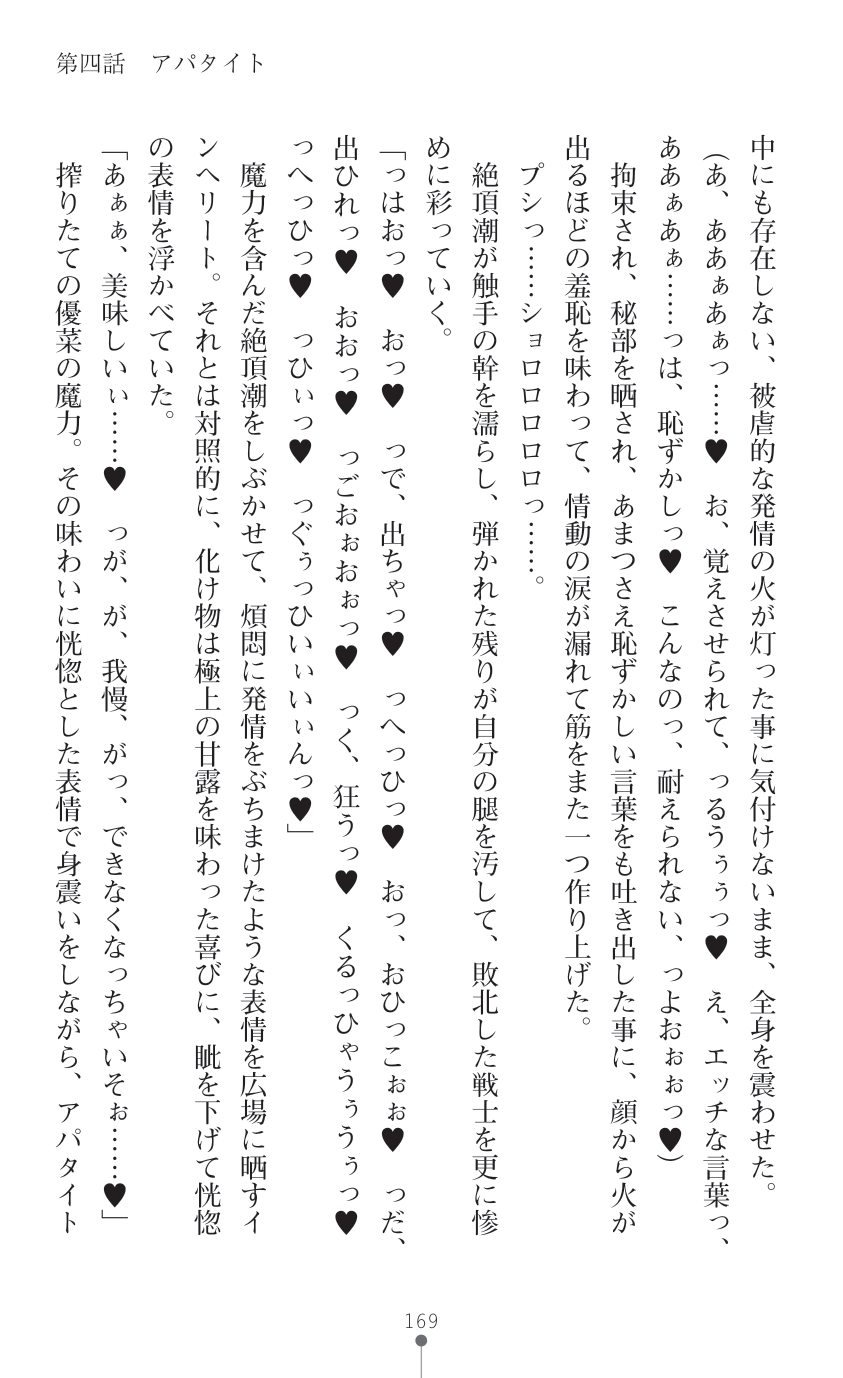 第四話　アパタイト
中にも存在しない、被虐的な発情の火が灯った事に気付けないまま、全身を震わせた。
（あ、ああぁあぁっ……♥　お、覚えさせられて、っるうぅぅっ♥　え、エッチな言葉っ、
ああぁあぁ……っは、恥ずかしっ♥　こんなのっ、耐えられない、っよおぉぉっ♥）
拘束され、秘部を晒され、あまつさえ恥ずかしい言葉をも吐き出した事に、顔から火が
出るほどの羞恥を味わって、情動の涙が漏れて筋をまた一つ作り上げた。
プシっ……ショロロロロロっ……。
絶頂潮が触手の幹を濡らし、弾かれた残りが自分の腿を汚して、敗北した戦士を更に惨
めに彩っていく。
「っはおっ♥　おっ♥　っで、出ちゃっ♥　っへっひっ♥　おっ、おひっこぉぉ♥　っだ、
出ひれっ♥　おおっ♥　っごおぉおぉっ♥　っく、狂うっ♥　くるっひゃうぅうぅっ♥
っへっひっ♥　っひぃっ♥　っぐぅっひいぃいぃんっ♥」
魔力を含んだ絶頂潮をしぶかせて、煩悶に発情をぶちまけたような表情を広場に晒すイ
ンヘリート。それとは対照的に、化け物は極上の甘露を味わった喜びに、眦を下げて恍惚
の表情を浮かべていた。
「あぁぁ、美味しいぃ……♥　っが、が、我慢、がっ、できなくなっちゃいそぉ……♥」
搾りたての優菜の魔力。その味わいに恍惚とした表情で身震いをしながら、アパタイト
169